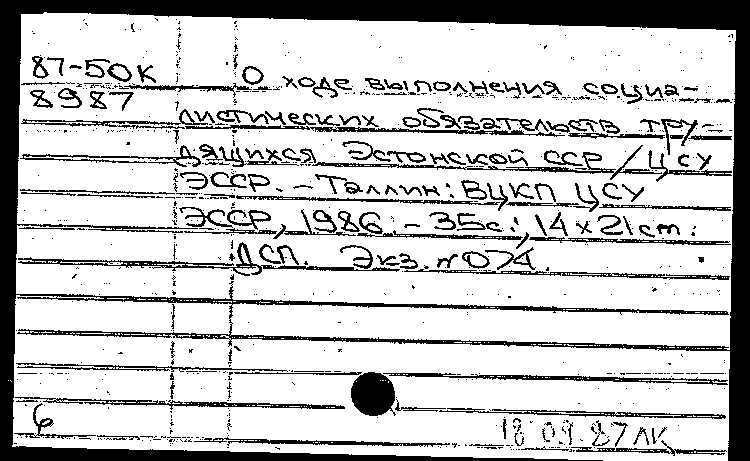 87-50К О ходе выполнения социа-
8987
листических обязательств тру-
дящихся Эстонской ССР / ЦСУ
ЭССР. - Таллин: ВЦКП ЦСУ
ЭССР, 1986. - 35с.; 14 x 21 cm.
ДСП. Экз. № 074.
6
18 09 87 ЛК